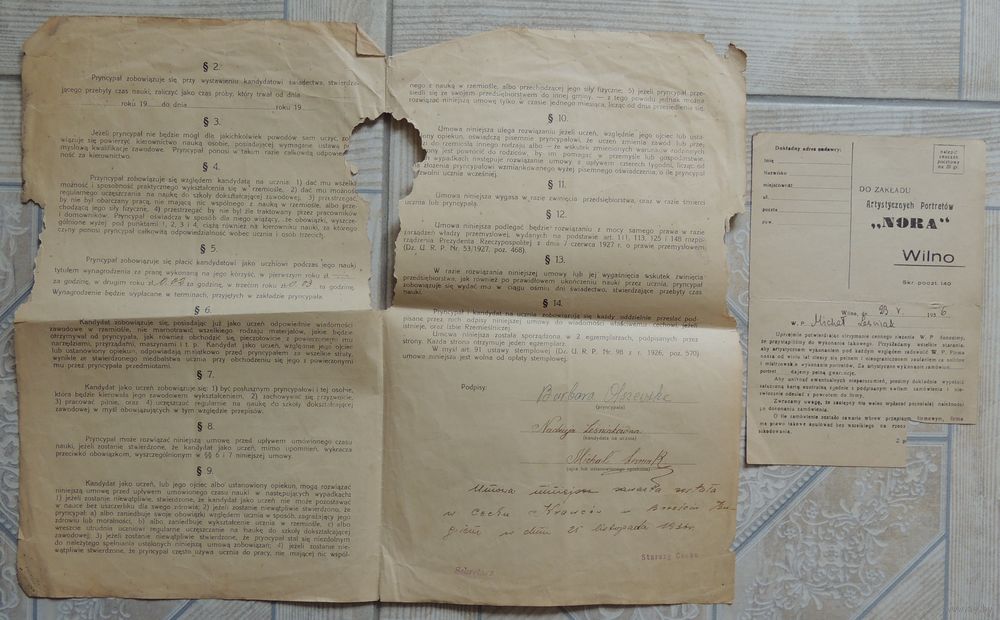 § 2.
Pryncypał zobowiązuje się przy wystawieniu kandydatowi świadectwa, stwierdza-
jącego przebyty czas nauki, zaliczyć jako czas próby, który trwał od dnia
roku 19 do dnia roku 19
§ 3.
Jeżeli pryncypał nie będzie mógł dla jakichkolwiek powodów sam uczyć, zobo-
wiązuje się powierzyć kierownictwo nauką osobie, posiadającej wymagane ustawą prze-
mysłową kwalifikacje zawodowe. Pryncypał ponosi w takim razie całkowitą odpowie
ność za kierownictwo.
§ 4.
Pryncypał zobowiązuje się względem kandydata na ucznia: 1) dać mu wszelką
możność i sposobność praktycznego wykształcenia się w rzemiośle, 2) dać mu możność
regularnego uczęszczania na naukę do szkoły dokształcającej zawodowej, 3) przestrzegać
by nie był obarczany pracą, nie mającą nic wspólnego z nauką w rzemiośle, albo prze-
chodzącą jego siły fizyczne, 4) przestrzegać by nie był źle traktowany przez pracowników
i domowników. Pryncypał oświadcza w sposób dla niego wiążący, że obowiązki, wyszcze-
gólnione wyżej pod punktami 1, 2, 3 i 4, ciążą również na kierowniku nauki, za którego
czyny ponosi pryncypał całkowitą odpowiedzialność wobec ucznia i osób trzecich.
§ 5.
Pryncypał zobowiązuje się płacić kandydatowi jako uczniowi podczas jego nauki
tytułem wynagrodzenia za pracę wykonaną na jego korzyść, w pierwszym roku zł.
za godzinę, w drugim roku zł 0.03 za godzinę, w trzecim roku zł 0.03 za godzinę
Wynagrodzenie będzie wypłacane w terminach, przyjętych w zakładzie pryncypała.
§ 6.
Kandydat zobowiązuje się, posiadając już jako uczeń odpowiednie wiadomości
zawodowe w rzemiośle, nie marnować wszelkiego rodzaju materjałów, jakie będzie
otrzymywał od pryncypała, jak również obchodzić się pieczołowicie z powierzonymi mu
narzędziami, przyrządami, maszynami i t. p. Kandydat jako uczeń, względnie jego ojciec
lub ustanowiony opiekun, odpowiadają majątkowo przed pryncypałem za wszelkie straty,
wynikłe ze stwierdzonego niedbalstwa ucznia przy obchodzeniu się jego z powierzonemi
mu przez pryncypała przedmiotami.
§ 7.
Kandydat jako uczeń zobowiązuje się: 1) być posłusznym pryncypałowi i tej osobie,
która będzie kierowała jego zawodowem wykształceniem, 2) zachowywać się przyzwoicie,
3) pracować pilnie, oraz 4) uczęszczać regularnie na naukę do szkoły dokształcającej
zawodowej w myśl obowiązujących w tym względzie przepisów.
§ 8.
Pryncypał może rozwiązać niniejszą umowę przed upływem umówionego czasu
nauki, jeżeli zostanie stwierdzone, że kandydat jako uczeń, mimo upomnień, wykracza
przeciwko obowiązkom, wyszczególnionym w §§ 6 i 7 niniejszej umowy.
§ 9.
Kandydat jako uczeń, lub jego ojciec albo ustanowiony opiekun, mogą rozwiązać
niniejszą umowę przed upływem umówionego czasu nauki w następujących wypadkach:
1) jeżeli zostanie niewątpliwie, stwierdzone, że kandydat jako uczeń nie może pozostawać
w nauce bez uszczerbku dla swego zdrowia; 2) jeżeli zostanie niewątpliwie, stwierdzone, że
pryncypał a) albo zaniedbuje swoje obowiązki względem ucznia w sposób zagrażający jego
zdrowiu lub moralności, b) albo zaniedbuje wykształcenie ucznia w rzemiośle, c) albo
wreszcie utrudnia uczniowi regularne uczęszczanie na naukę do szkoły dokształcającej
zawodowej; 3) jeżeli zostanie niewątpliwie, stwierdzone, że pryncypał stał się niezdolnym
do należytego spełniania ustalonych niniejszą umową zobowiązań; 4) jeżeli zostanie nie-
wątpliwie stwierdzone, że pryncypał często używa ucznia do pracy, nie mającej nic wspól-
nego z nauką w rzemiośle, albo przechodzącej jego siły fizyczne; 5) jeżeli pryncypał prze-
siedli się ze swojem przedsiębiorstwem do innej gminy, — z tego powodu jednak można
rozwiązać niniejszą umowę tylko w czasie jednego miesiąca, licząc od dnia przesiedlenia się.
§ 10.
Umowa niniejsza ulega rozwiązaniu jeżeli uczeń, względnie jego ojciec lub usta-
wiony opiekun, oświadczą pisemnie pryncypałowi, że uczeń zmienia zawód lub prze-
dzi do rzemiosła innego rodzaju albo — że wskutek zmienionych warunków rodzinnych
jest powrócić do rodziców, by im pomagać w przemyśle lub gospodarstwie.
wypadkach następuje rozwiązanie umowy z upływem czterech tygodni, licząc od
złożenia pryncypałowi wzmiankowanego wyżej pisemnego oświadczenia, o ile pryncypał
zwolni ucznia wcześniej.
§ 11.
Umowa niniejsza wygasa w razie zwinięcia przedsiębiorstwa, oraz w razie śmierci
ucznia lub pryncypała.
§ 12.
Umowa niniejsza podlegać będzie rozwiązaniu z mocy samego prawa w razie
zarządzeń władzy przemysłowej, wydanych na podstawie art. 111, 113, 125 i 148 rozpo-
rządzenia Prezydenta Rzeczypospolitej z dnia 7 czerwca 1927 r. o prawie przemysłowem
(Dz. U. R. P. Nr. 53/1927, poz. 468).
§ 13.
W razie rozwiązania niniejszej umowy lub jej wygaśnięcia wskutek zwinięcia
przedsiębiorstwa, jak również po prawidłowem ukończeniu nauki przez ucznia, pryncypał
zobowiązuje się wydać mu w ciągu ośmiu dni świadectwo, stwierdzające przebyty czas
nauki.
§ 14.
Pryncypał i kandydat na ucznia zobowiązują się każdy oddzielnie przesłać pod-
pisane przez nich odpisy niniejszej umowy do wiadomości właściwemu cechowi, jeżeli
istnieje, oraz Izbie Rzemieślniczej.
Umowa niniejsza została sporządzona w 2 egzemplarzach, podpisanych przez
strony. Każda strona otrzymuje jeden egzemplarz umowy niniejszej.
W myśl art. 91 ustawy stemplowej (Dz. U. R. P. Nr. 98 z r. 1926, poz. 570)
umowa niniejsza jest wolna od opłaty stemplowej.
Podpisy:
Barbara
(pryncypała)
Nadzieja Leśniakówna
(kandydata na ucznia)
Michał Leśniak
(ojca lub ustanowionego opiekuna)
Umowa niniejsza zawarta została
w Cechu Krawców w Brześciu Bu-
giem w dniu 21 listopada
Sekretarz
Starszy Cechu
Dokładny adres nadawcy:
Imię
Nazwisko
miejscowość
ul.
poczta
pow.
nalepić
znaczek
pocztowy
DO ZAKŁADU
Artystycznych Portretów
„NORA“
Wilno
Skr. poczt. 140
Wilno, dn. 29 V. 1936
W. P. Michał Leśniak